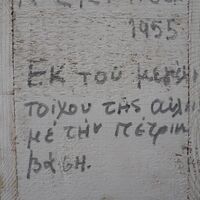 1955
Ἐκ τοῦ μεγάλ
τοίχου τῆς αὐλ
μέ τήν πέτριν
βάση.